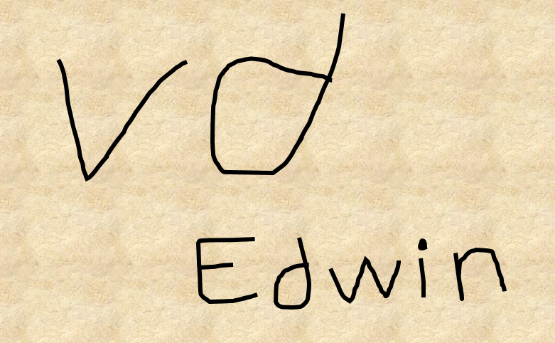 Vd
Edwin